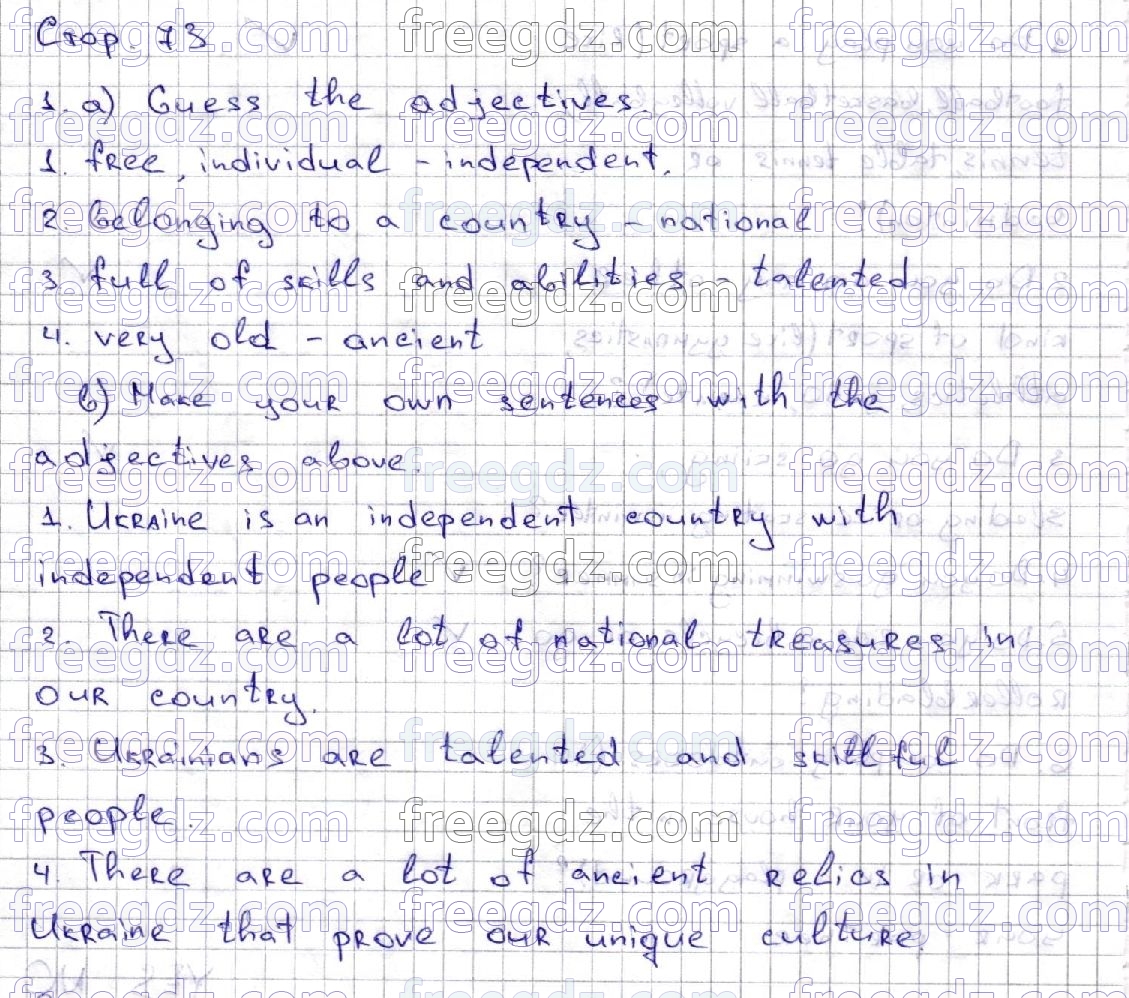 Стор. 73
1. a) Guess the adjectives.
1. free, individual - independent.
2. belonging to a country - national
3. full of skills and abilities - talented
4. very old - ancient
b) Make your own sentences with the
adjectives above.
1. Ukraine is an independent country with
independent people
2. There are a lot of national treasures in
our country.
3. Ukrainians are talented and skillful
people.
4. There are a lot of ancient relics in
Ukraine that prove our unique culture.
freegdz.com